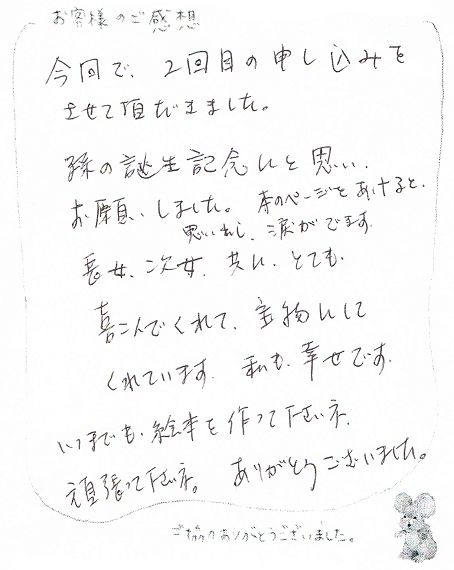 お客様のご感想
今回で、2回目の申し込みを
させて頂だきました。
孫の誕生記念にと思い、
お願いしました。 本のページをあけると、
思いだし、涙がでます。
長女、次女、共に、とても、
喜こんでくれて、宝物にして
くれています。 私も、幸せです。
いつまでも、絵本を作って下さいネ。
頑張って下さいネ。 ありがとうございました。
ご協力ありがとうございました。